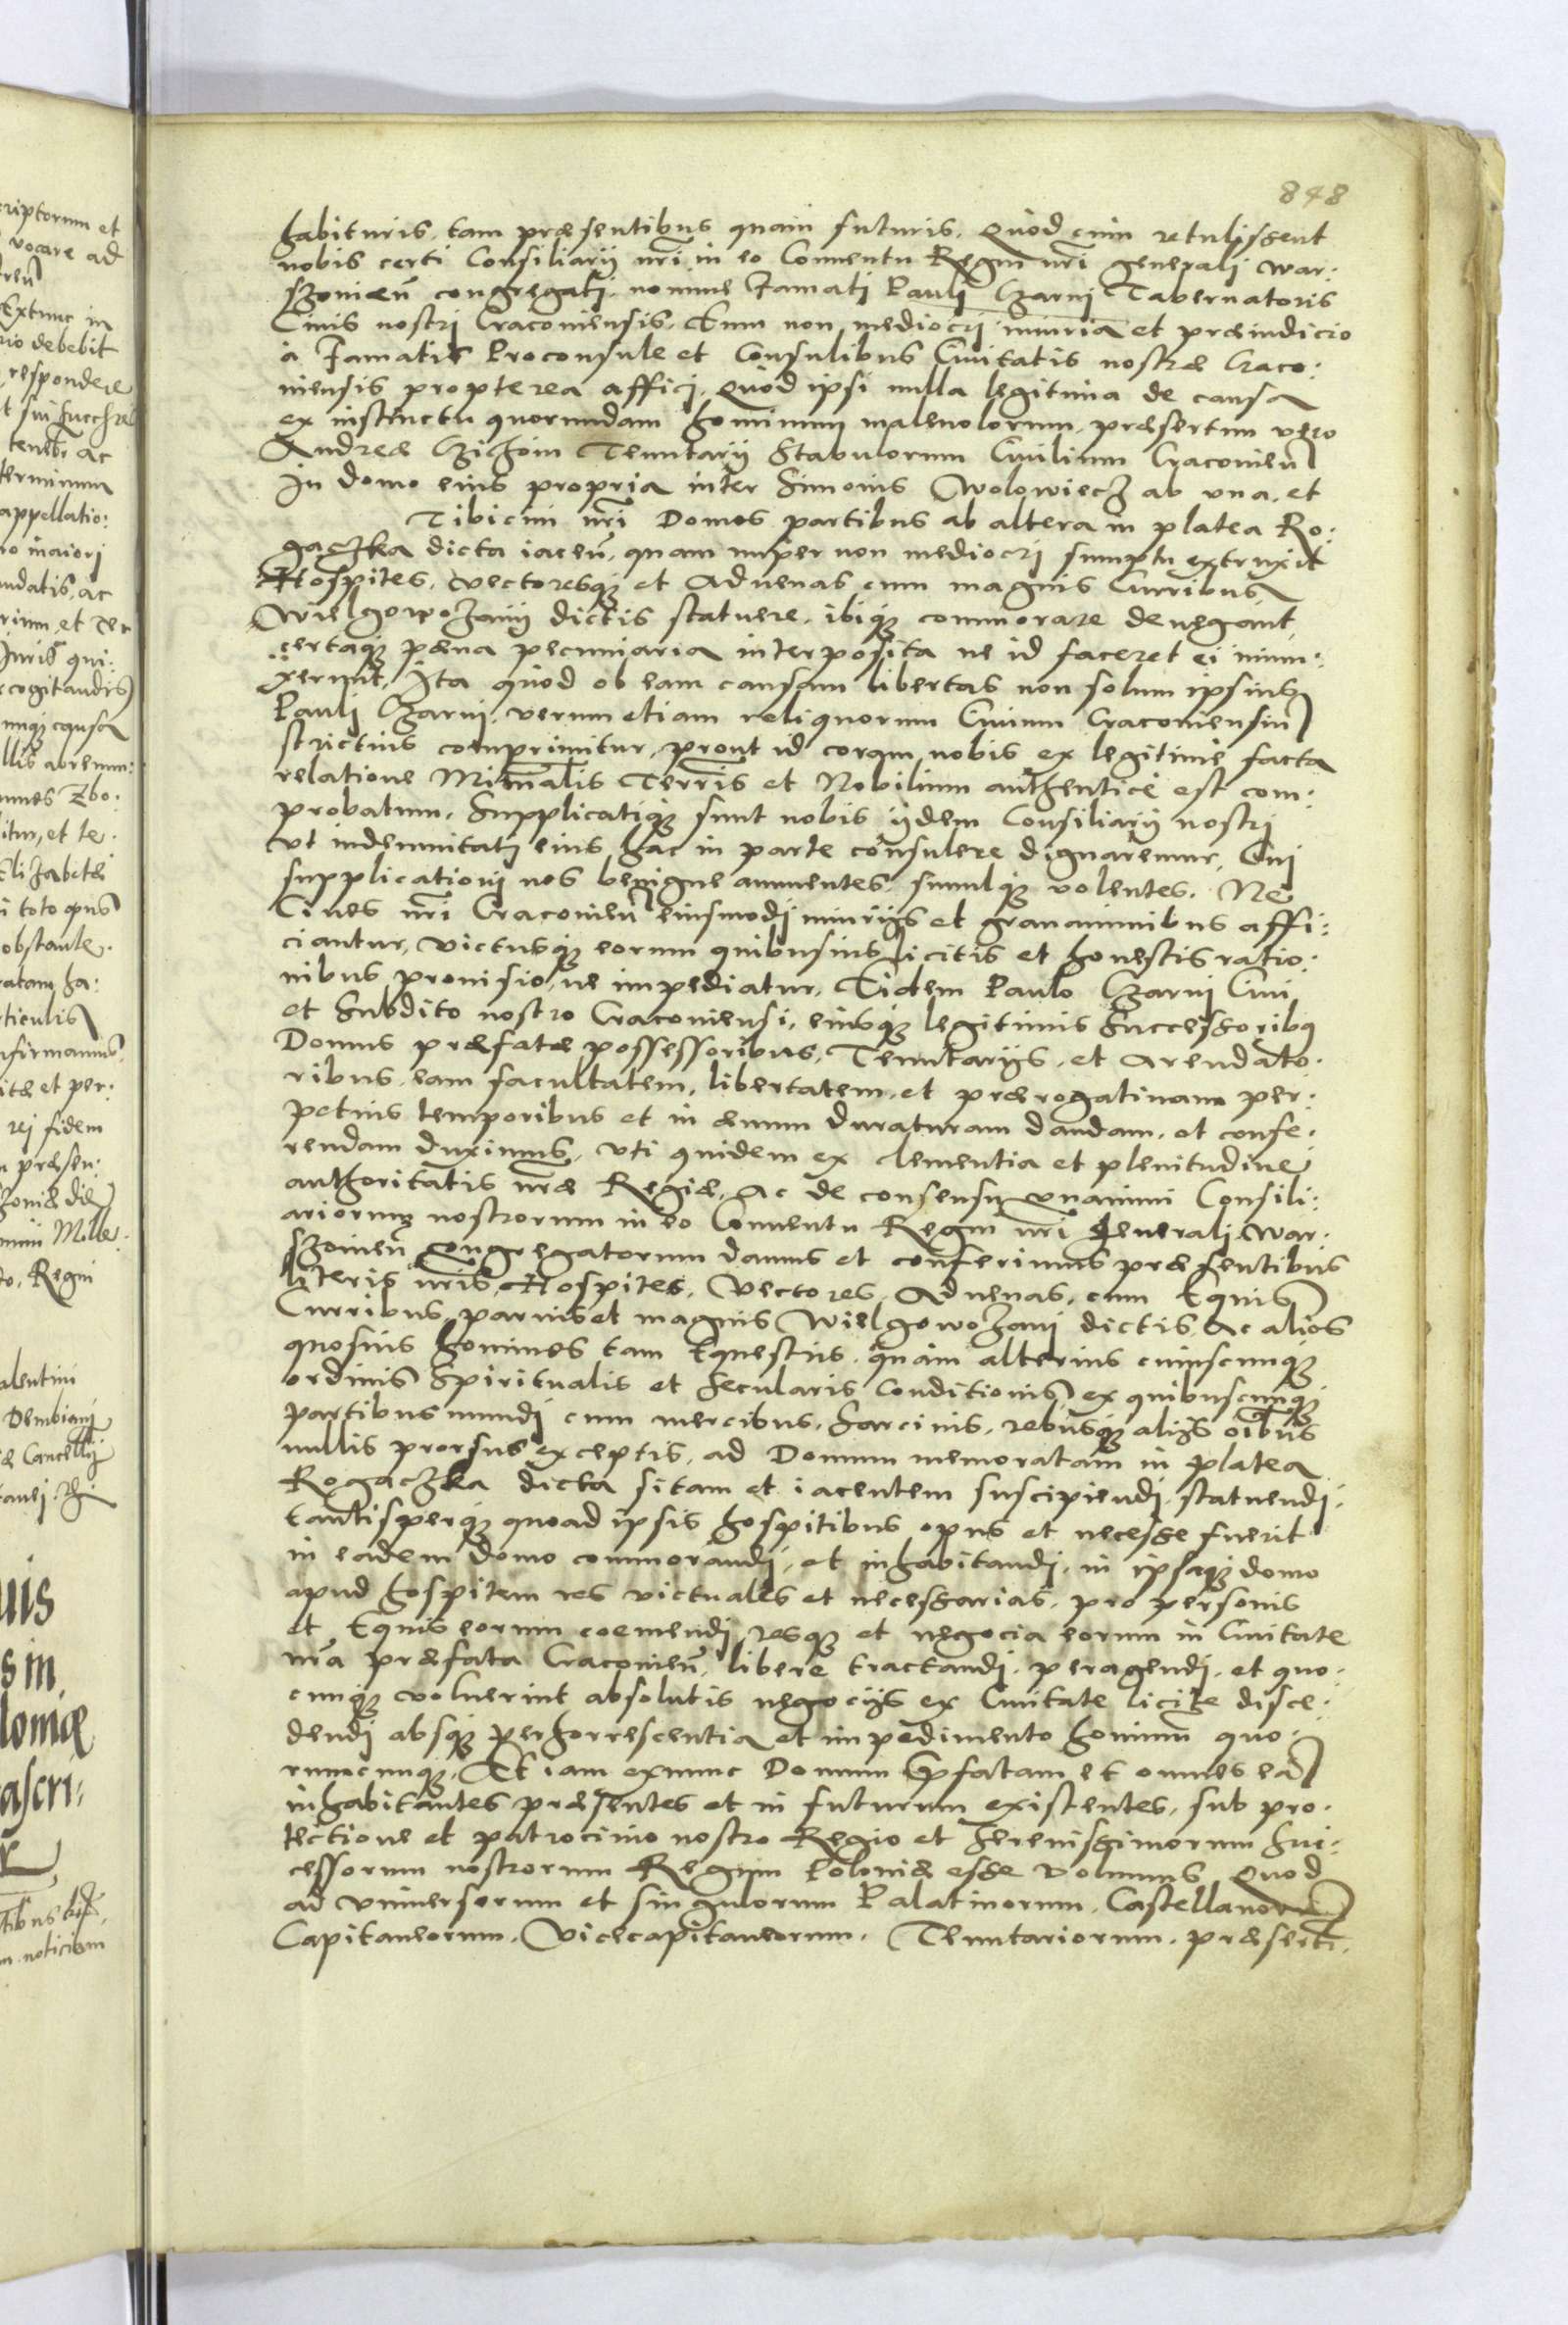 848
habituris, tam præsentibus quam futuris. Quod cum retulissent
nobis certi Consiliarij nri in eo Conuentu Regni nri generali War:
szouien congregati, nomine Famati Pauli Czarni Tabernatoris
Ciuis nostri Cracouiensis. Eum non mediocri iniuria et præiudicio
à Famatis Proconsule et Consulibus Ciuitatis nostræ Craco:
uiensis propterea affici, Quòd ipsi nulla legitima de causa
ex instinctu quorundam hominum maleuolorum, præsertim vero
Andreæ Czichoin Tenutarij Stabulorum Ciuilium Cracouien
In domo eius propria inter Simonis Wolowiecz ab vna, et
Tibicini nri Domos partibus ab altera in platea Ro:
gaczka dicta iacen, quam nuper non mediocri sumptu extruxit
Hospites, vectoresq et Aduenas cum magnis Curribus
Wielgowozanij dictis statuere, ibiq commorare denegant,
certaq pæna pecuniaria interposita ne id faceret ei iniun:
xerunt, Ita quòd ob eam causam libertas non solum ipsius
Pauli Czarni, verum etiam reliquorum Ciuium Cracouiensiu
strictius comprimitur, prout id coram nobis ex legitimè facta
relatione Minralis Terris et Nobilium authenticè est com:
probatum. Supplicatiq sunt nobis ijdem Consiliarij nostri
vt indemnitati eius hac in parte consulere dignaremur, Cui
supplicationi nos benignè annuentes, simulq volentes, Ne
Ciues nri Cracouien eiusmodi iniurijs et grauaminibus affi:
ciantur, victusq eorum quibusuis licitis et honestis ratio:
nibus prouisio, ne impediatur, Eidem Paulo Czarni Ciui
et Subdito nostro Cracouiensi, eiusq legitimis Successoribq
Domus præfatæ possessoribus, Tenutarijs, et Arendato:
ribus, eam facultatem, libertatem, et prærogatiuam per:
petuis temporibus et in æuum duraturam dandam, et confe:
rendam duximus, Vti quidem ex clementia et plenitudine
authoritatis nræ Regiæ, ac de consensu vnanimi Consili:
ariorum nostrorum in eo Conuentu Regni nri generali War:
szouien congregatorum damus et conferimus præsentibus
literis nris, Hospites, Vectores, Aduenas, cum Equis
Curribus paruis et magnis Wielgowozani dictis, Ac alios
quosuis homines tam Equestris, quàm alterius cuiuscunq
ordinis Spiritualis et Secularis Conditionis, ex quibuscunq
partibus mundi cum mercibus, Sarcinis, rebusq alijs oibus
nullis prorsus exceptis, ad Domum memoratam in platea
Rogaczka dicta sitam et iacentem suscipiendi, statuendi,
tantisperq quoad ipsis hospitibus opus et necesse fuerit
in eadem domo commorandi, et inhabitandi, in ipsaq domo
apud hospitem res victuales et necessarias, pro personis
et Equis eorum coemendi, resq et negocia eorum in Ciuitate
nra præfata Cracouien, liberè tractandi, peragendi, et quo:
cunq voluerint absolutis negocijs ex Ciuitate licitè disce:
dendi absq perhorrescentia et impedimento hominu quo:
rumcunq, Et iam exnunc Domum pfatam et omnes ea
inhabitantes præsentes et in futurum existentes, sub pro:
tectione et patrocinio nostro Regio et Serenissimorum Suc:
cessorum nostrorum Regum Poloniæ esse volumus. Quod
ad vniuersorum et singulorum Palatinorum, Castellanoru
Capitaneorum, Vicecapitaneorum, Tenutariorum, præserti